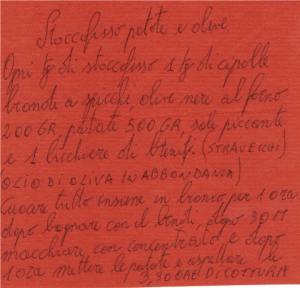 Stoccafisso patate e olive
Ogni kg di stoccafisso 1 kg di cipolle
bionde a spicchi olive nere al forno
200 GR, patate 500 GR, sale piccante
e 1 bicchiere di (STRAVECCHIO
OLIO DI OLIVA IN ABBONDANZA)
Cuocere tutto insieme in bianco per 1 ora
dopo bagnare con il dopo 30 M
macchiare con concentrato e dopo
1 ora mettere le patate e aspettare le
3,30 ORE DI COTTURA